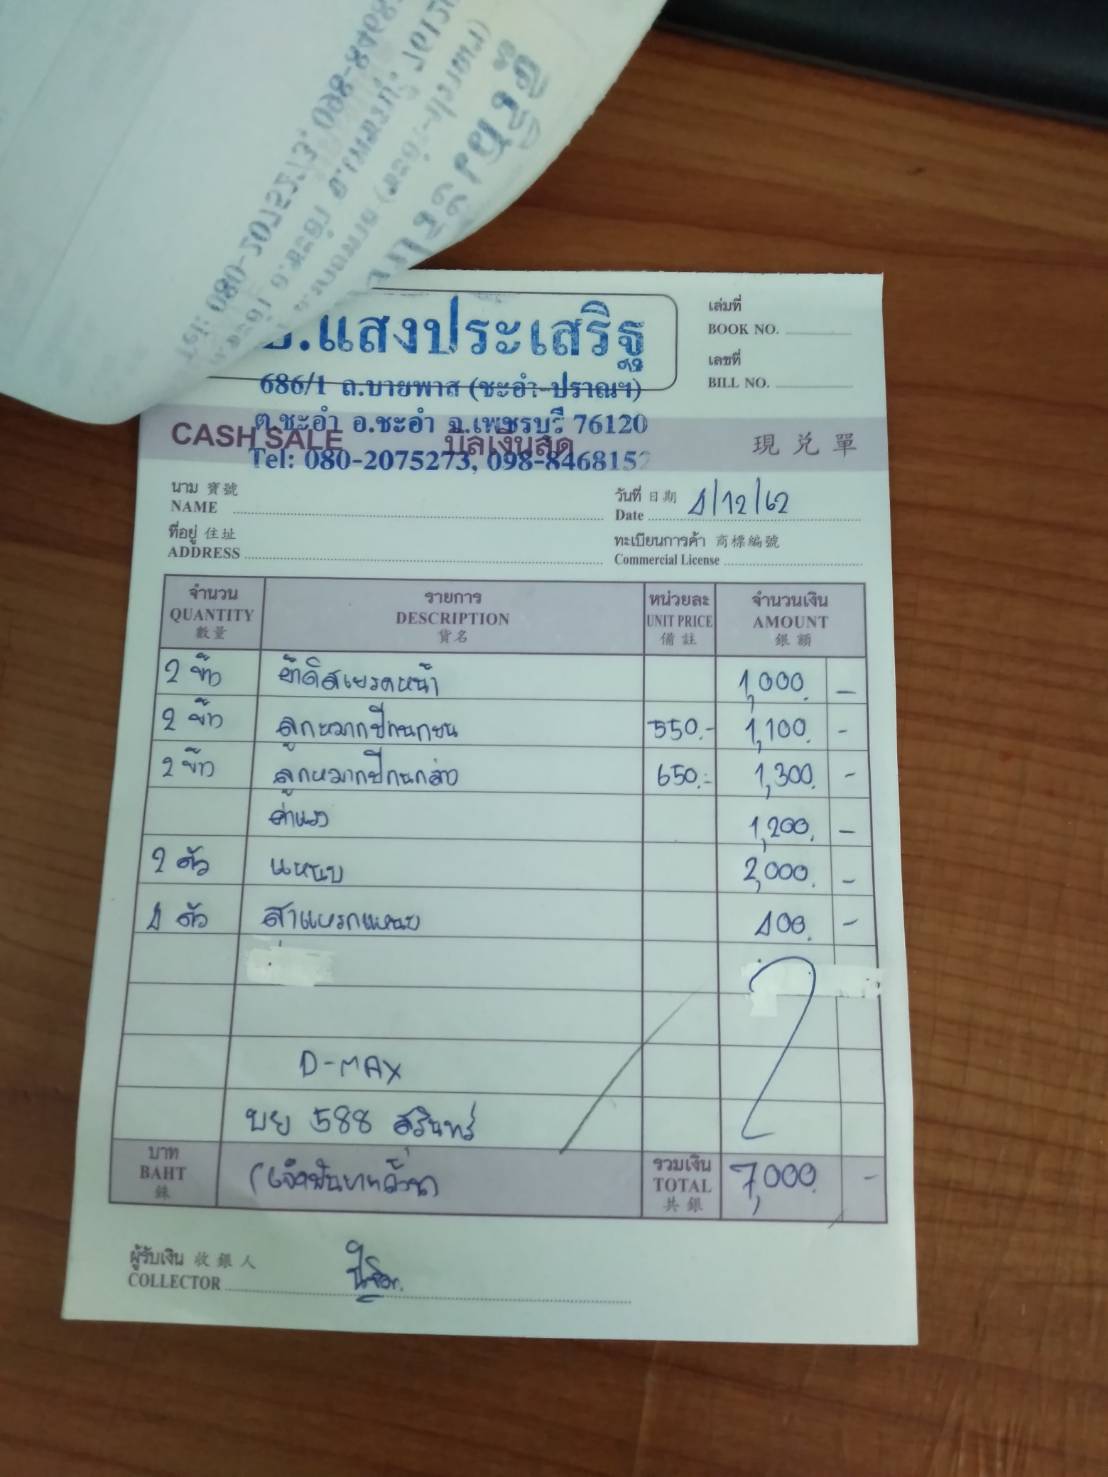 .แสงประเสริฐ
686/1 ถ.บายพาส (ชะอำ-ปราณฯ)
ต.ชะอำ อ.ชะอำ จ.เพชรบุรี 76120
Tel: 080-2075273, 098-8468152
เล่มที่
BOOK NO.
เลขที่
BILL NO.
CASH SALE บิลเงินสด 現兌單
นาม 寶號
NAME
วันที่ 日期
Date 1/12/62
ที่อยู่ 住址
ADDRESS
ทะเบียนการค้า 商標編號
Commercial License
จำนวน รายการ หน่วยละ จำนวนเงิน
QUANTITY DESCRIPTION UNIT PRICE AMOUNT
數量 貨名 備註 銀額
2 ข้าง หน้า 1,000. -
2 ข้าง ลูกหมากปีกนกบน 550.- 1,100. -
2 ข้าง ลูกหมากปีกนกล่าง 650.- 1,300. -
ค่าแรง 1,200. -
2 ตัว แหนบ 2,000. -
1 ตัว สาแหรกแหนบ 400. -
D-MAX
บย 588 สุรินทร์
บาท
BAHT
銖
(เจ็ดพันบาทถ้วน)
รวมเงิน
TOTAL 7,000. -
共銀
ผู้รับเงิน 收銀人
COLLECTOR